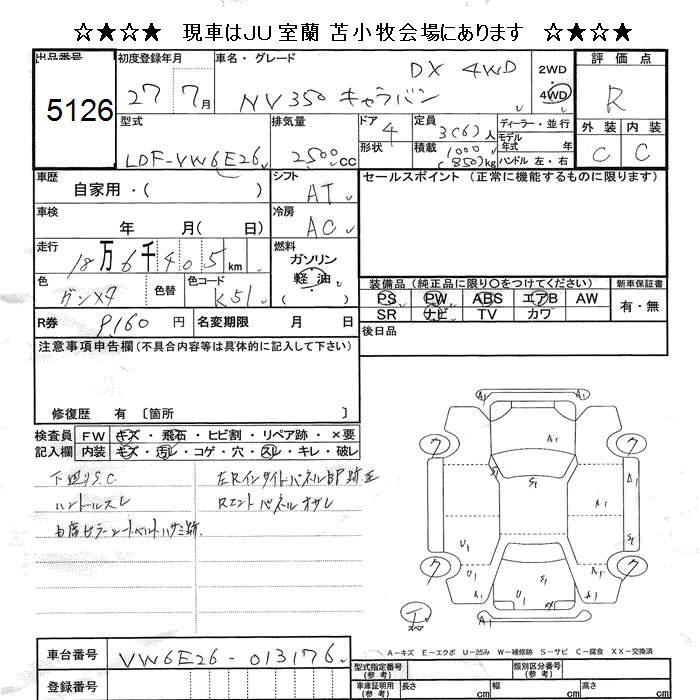 ☆★☆★ 現車はJU室蘭 苫小牧会場にあります ☆★☆★
出品番号 初度登録年月 車名・グレード 評価点
5126 27年 7月 NV350 キャラバン DX 4WD 2WD 4WD R
型式 排気量 ドア 4 定員 3(6)人 ディーラー・並行 外装 内装
LDF-VW6E26 2500cc 形状 積載 1000(850)kg モデル年式 年 ハンドル 左・右 C C
車歴 シフト AT セールスポイント(正常に機能するものに限ります)
自家用・( )
車検 冷房 AC
年 月( 日)
走行 18万6千405km 燃料 ガソリン 軽油
色 色替 色コード K51 装備品(純正品に限り○をつけてください) 新車保証書
PS PW ABS エアB AW 有・無
SR ナビ TV カワ
R券 9,160円 名変期限 月 日 後日品
注意事項申告欄(不具合内容等は具体的に記入して下さい)
修復歴 有 [箇所 ]
検査員 FW キズ・飛石・ヒビ割・リペア跡・×要
記入欄 内装 キズ・汚レ・コゲ・穴・スレ・キレ・破レ
下廻りS.C
ハンドルスレ
A1
A1
S1 S1
A1 A1
U1 S1
U1 A1 A1
S1
A1
A・キズ E・エクボ U・凹み W・補修跡 S・サビ C・腐食 XX・交換済
車台番号 VW6E26-013176 型式指定番号(参考) 類別区分番号(参考)
登録番号 車庫証明用(参考) 長さ cm 幅 cm 高さ cm